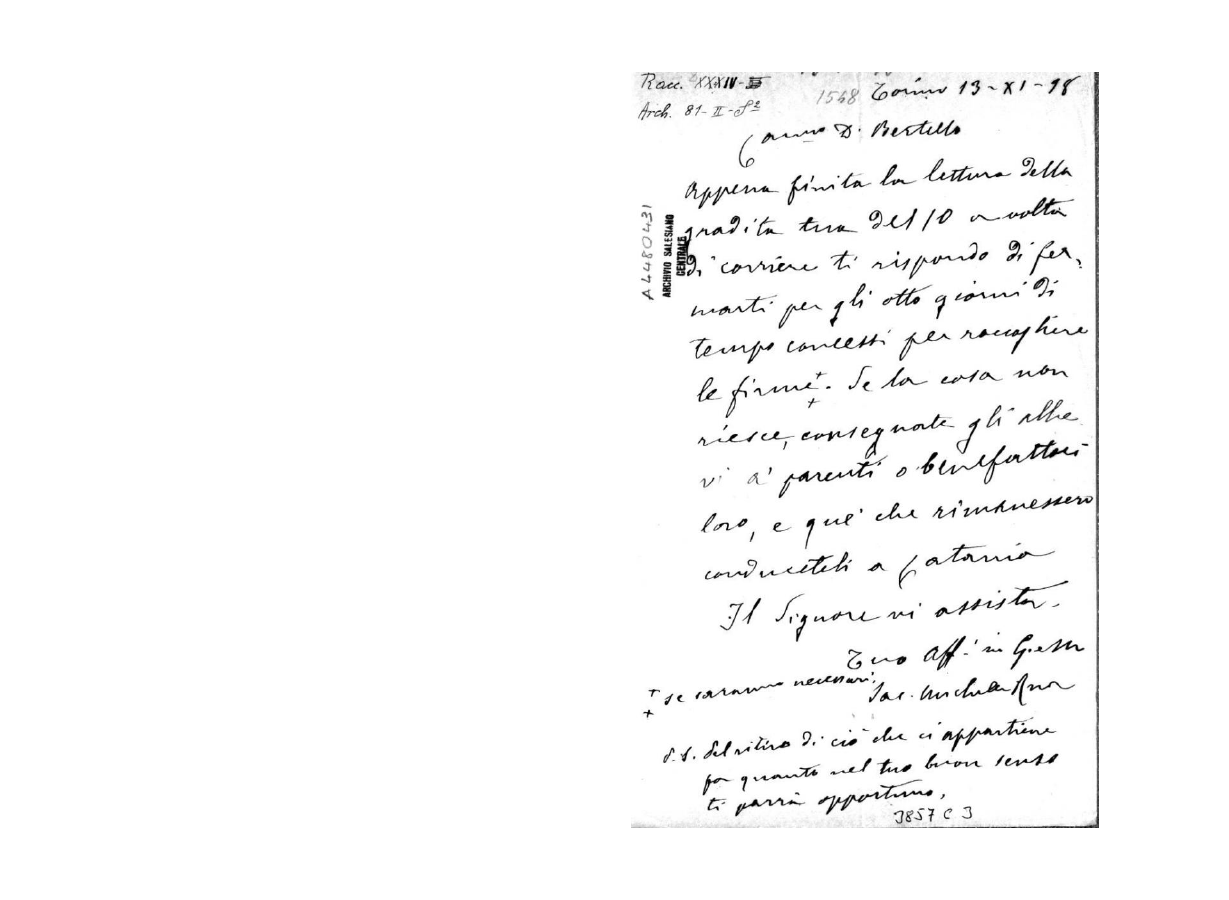 Racc. XXXIV-
Arch. 81-II-S²
1568 Torino 13-XI-98
Carmo D. Bertello
Appena finita la lettura della
gradita tua del 10 a volta
di corriere ti rispondo di fer-
marti per gli otto giorni di
tempo concessi per raccogliere
le firme ++. Se la cosa non
riesce, consegnate gli allie
vi a' parenti o benefattori
loro, e que' che rimanessero
conduceteli a Catania
Il Signore vi assista.
Tuo Aff. in Gesù
Sac. Michele Rua
++ se saranno necessari.
P.S. Del ritiro di ciò che ci appartiene
fa quanto nel tuo buon senso
ti parrà opportuno.
3857 C 3
A4480431
ARCHIVIO SALESIANO
CENTRALE